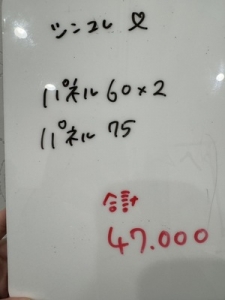 シンコレ ♡
パネル 60×2
パネル 75
合計
47.000